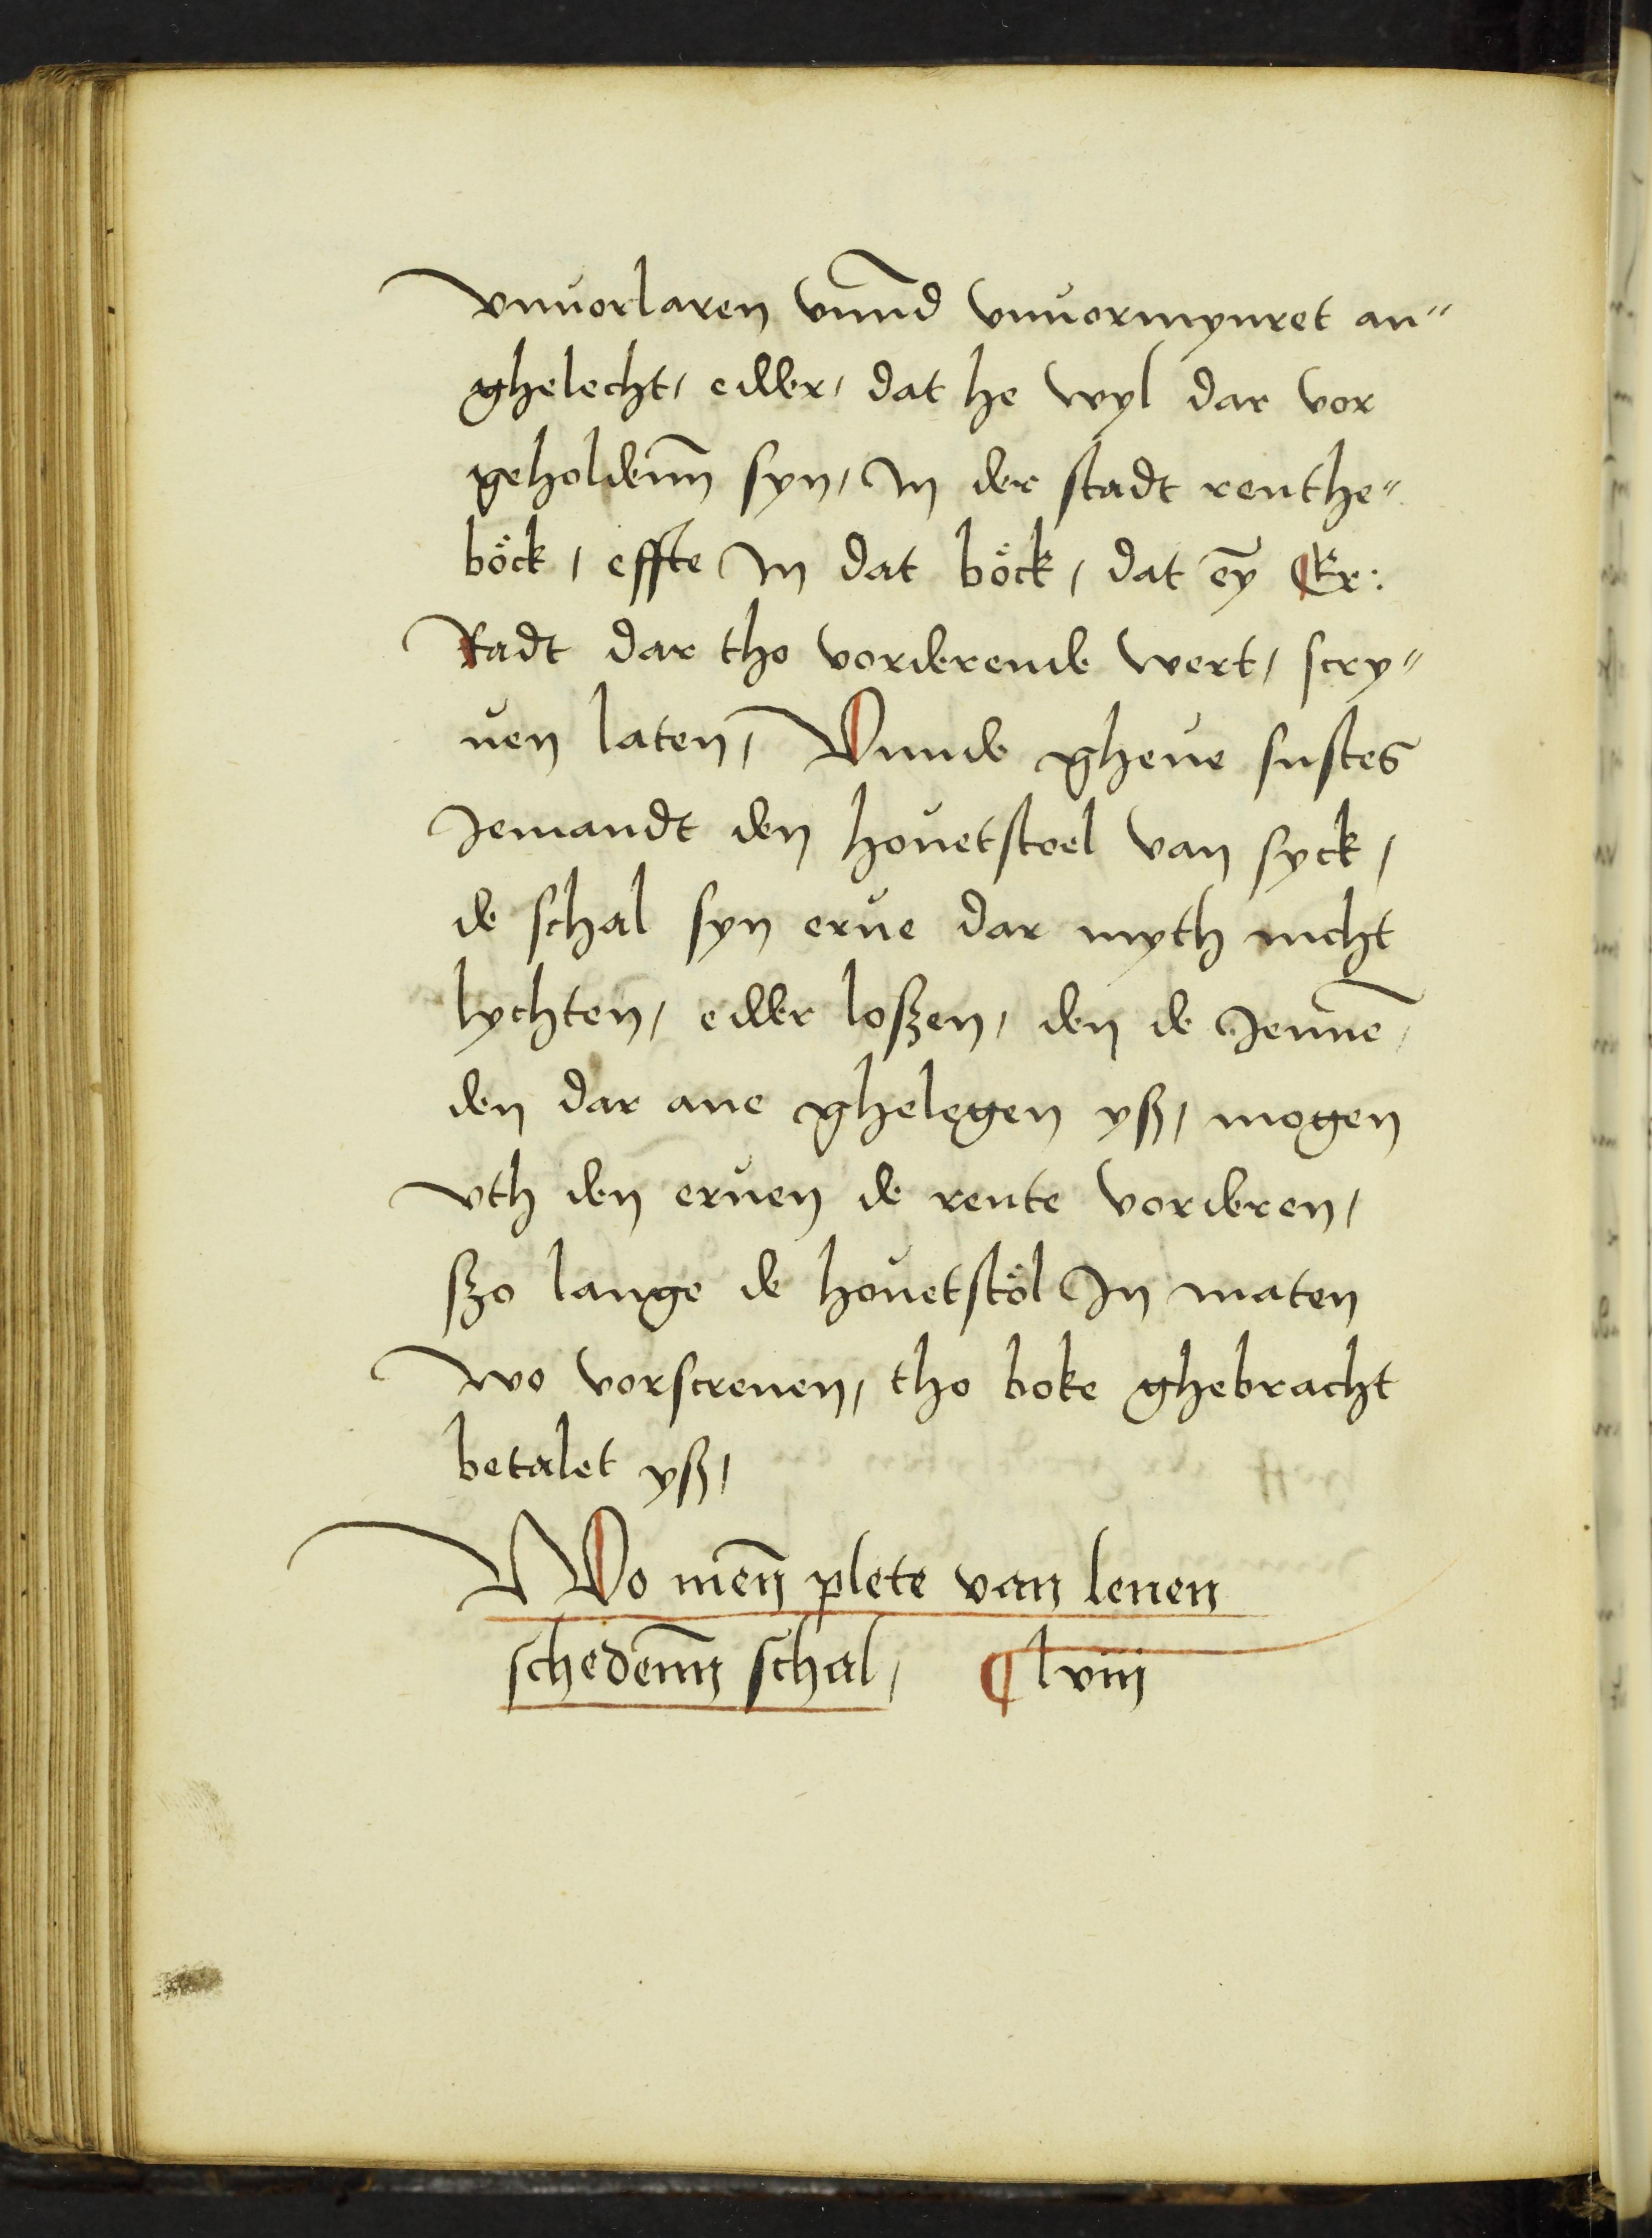 vnuorlaren vnnd vnuormynret an„
ghelecht, edder, dat he wyl dar vor
geholdenn syn, In der stadt renthe„
böck, effte In dat böck, dat eȳ Er:
Radt dar tho vorderende wert, scry„
uen laten, Vnnde gheue sustes
Jemandt den houetstoel van syck,
de schal syn erue dar myth nicht
lychten, edder loszen, den de Jenne,
den dar ane ghelegen ysz, mogen
vth den eruen de rente vorderen,
szo lange de houetstöl In maten
wo vorscreuen, tho boke ghebracht
betalet ysz,
Wo men̄ plete van lenen
schedenn schal, ¶ lviij